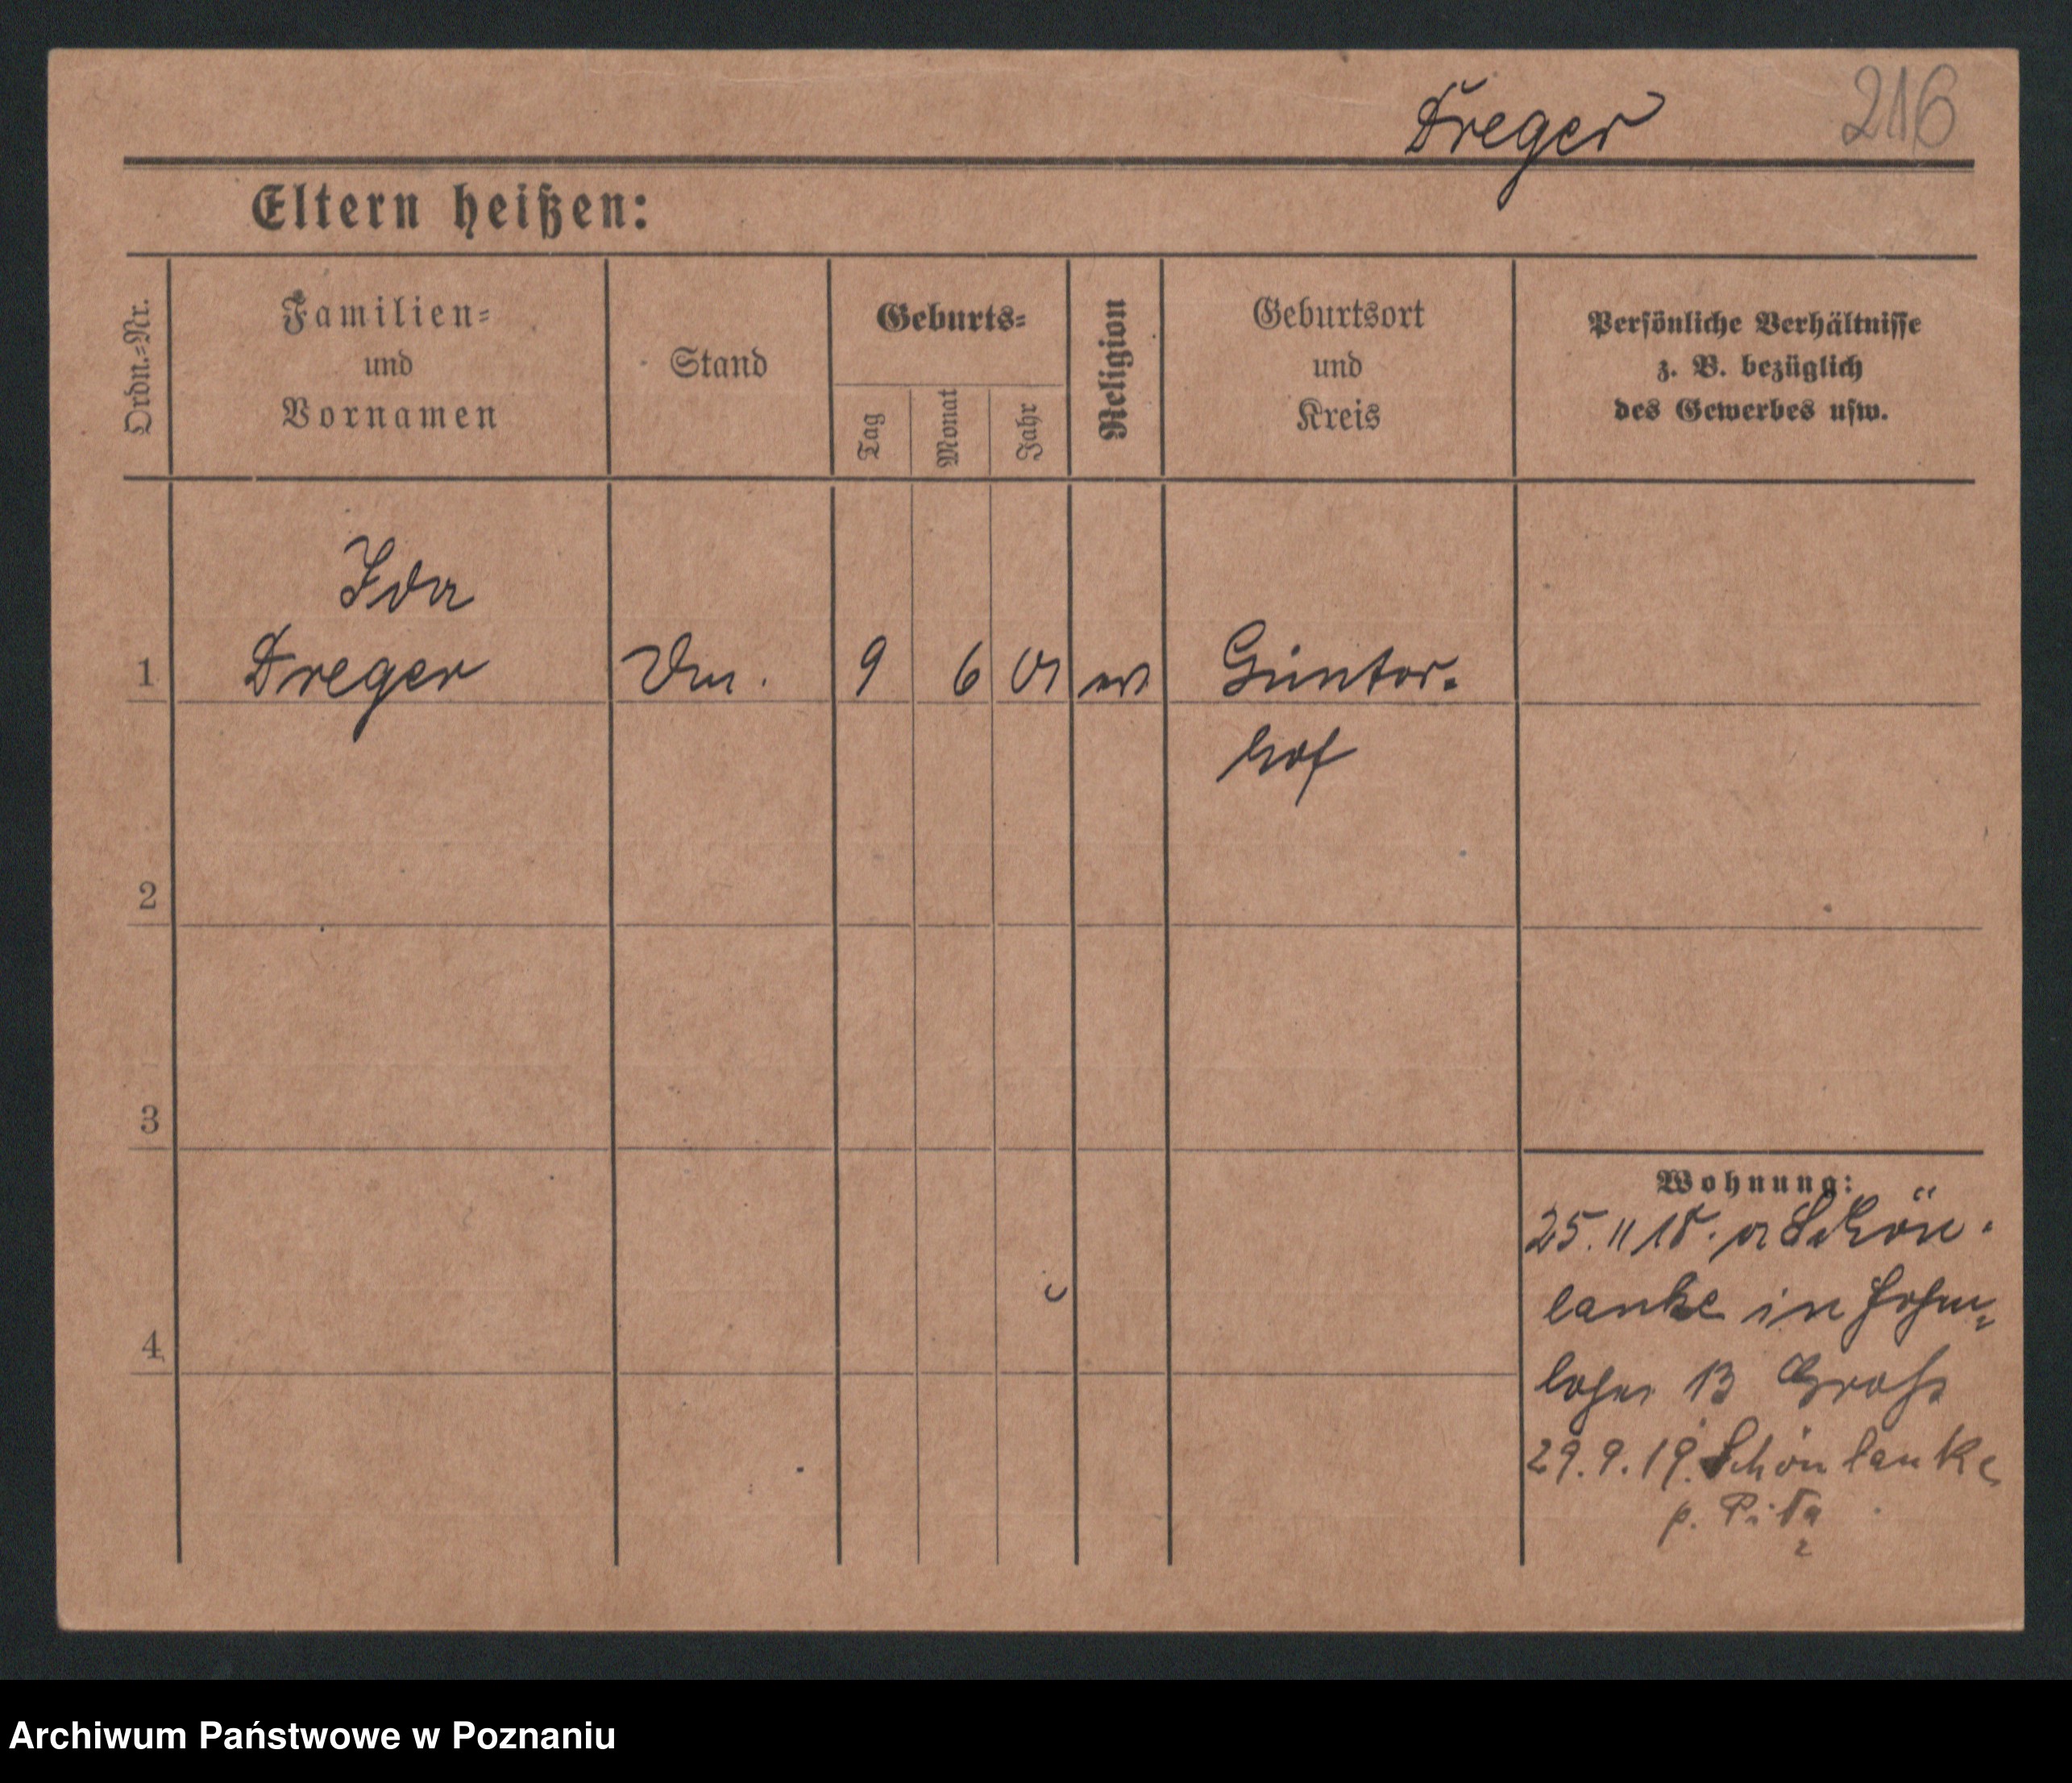 Dreger 216
Eltern heißen:
Ordn.=Nr.
Familien=
und
Vornamen
Stand
Geburts=
Tag
Monat
Jahr
Religion
Geburtsort
und
Kreis
Persönliche Verhältnisse
z. B. bezüglich
des Gewerbes usw.
Ida
1 Dreger 9 6 01 ev Günter-
hof
2
3
4
Wohnung:
25. 11 18. a Schön-
lanke in Hohen=
loher 13
29.9.19. Schönlanke
Archiwum Państwowe w Poznaniu